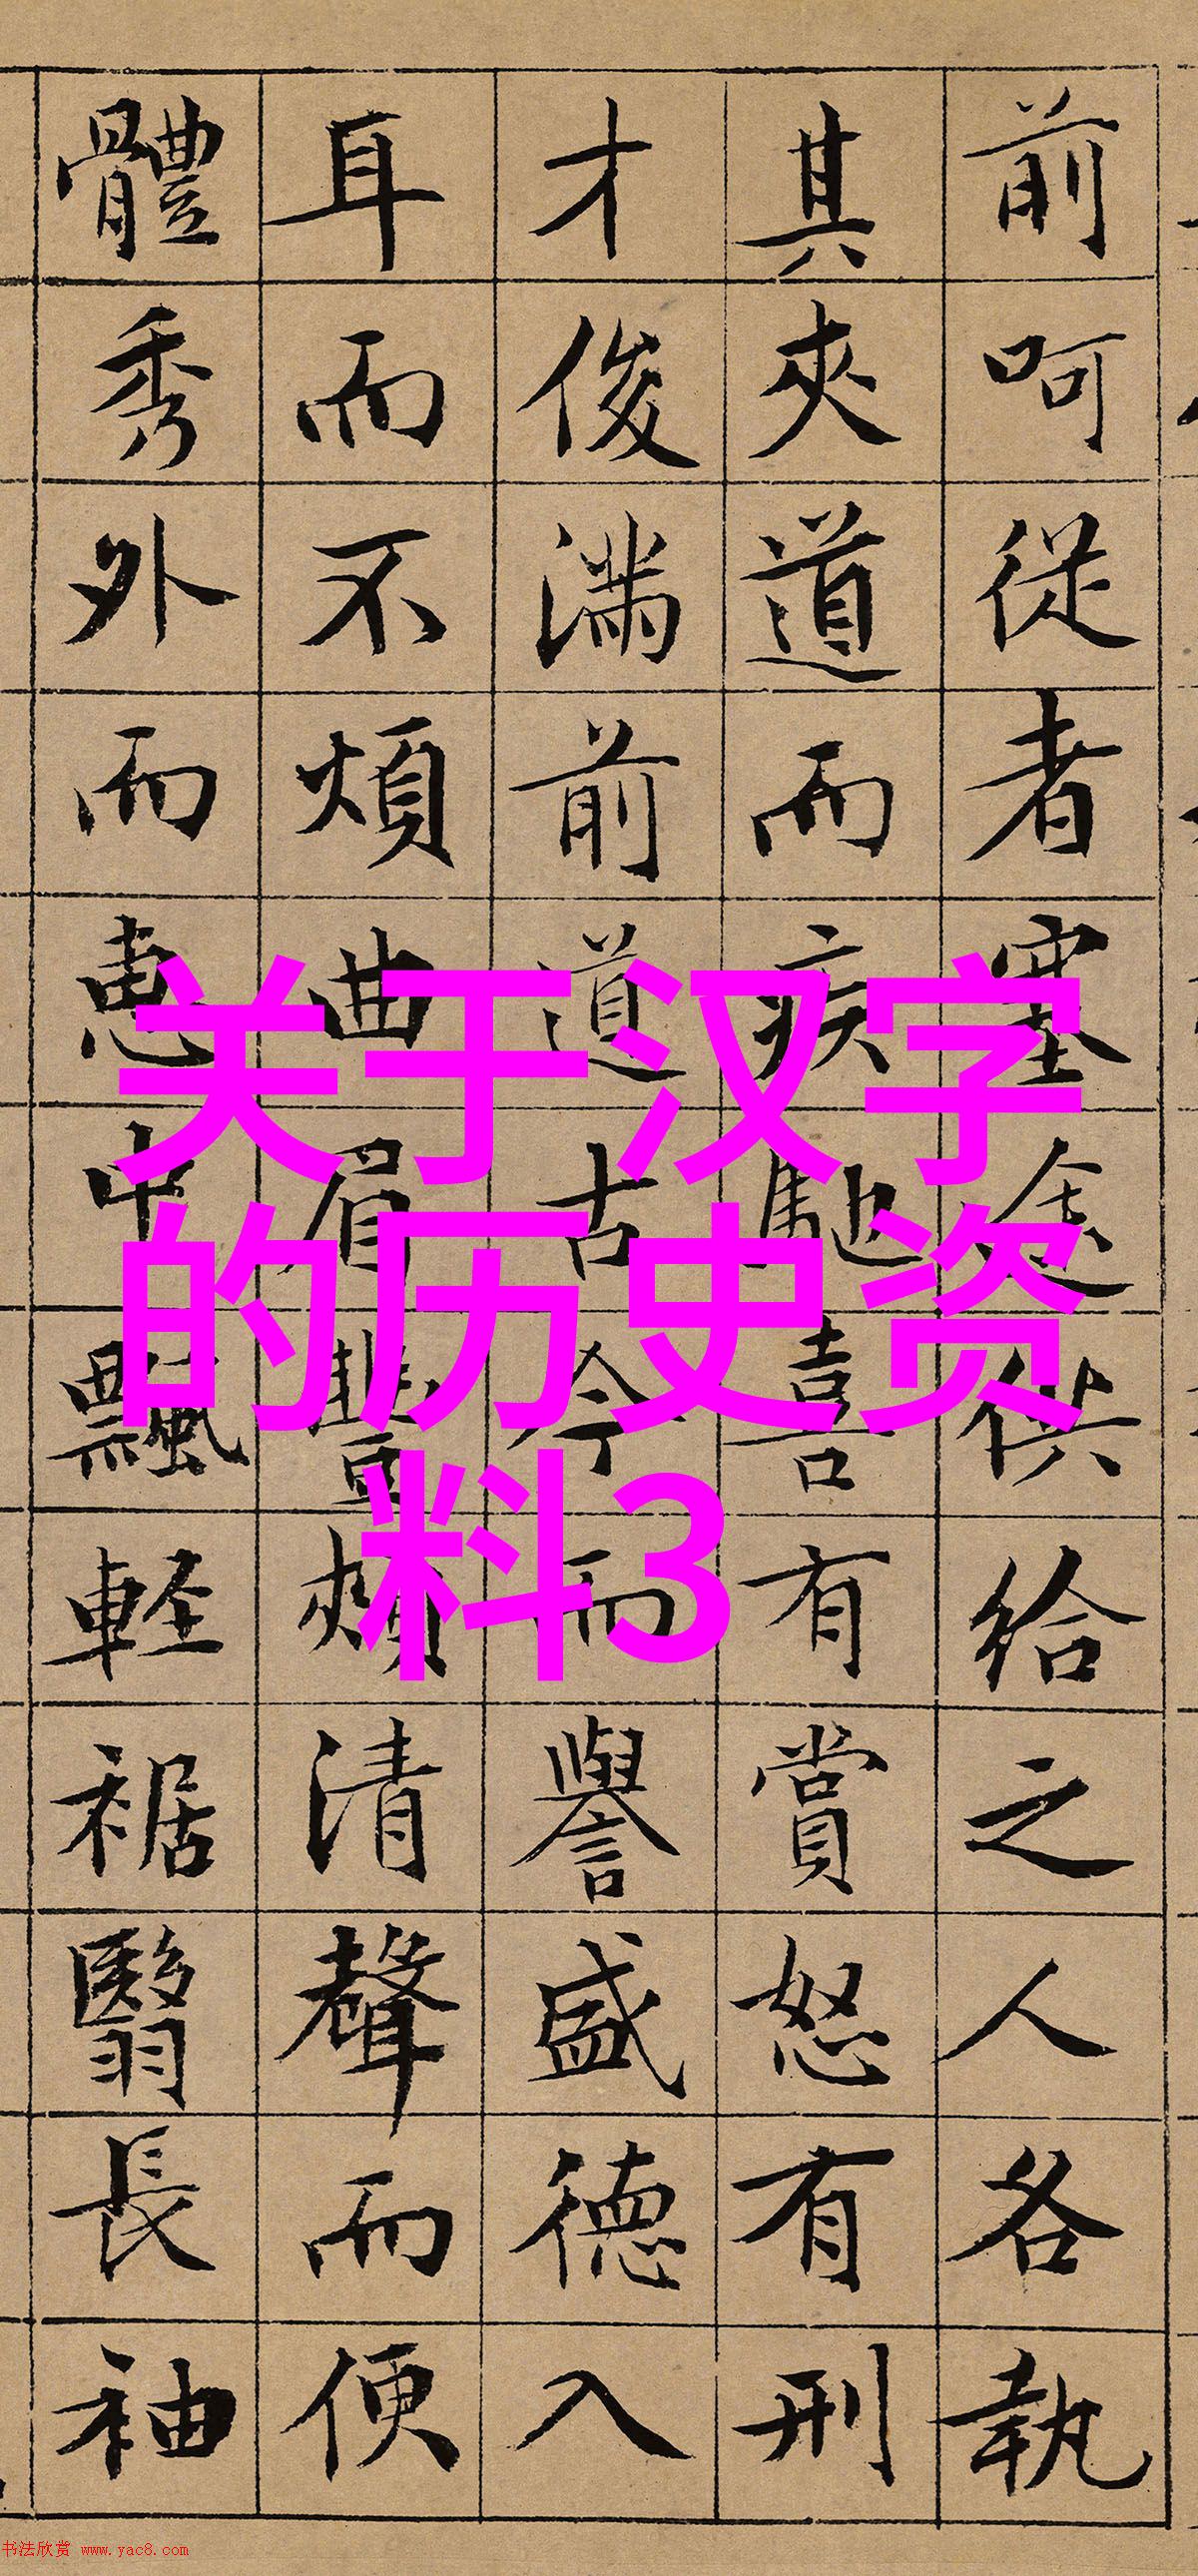 前呵從者塞途供給之人各執
其夾道而疾馳喜有賞怒有刑
才俊滿前道古今而譽盛德入
耳而不煩曲眉豐頰清聲而便
體秀外而惠中飄輕裾翳長袖
关于汉字
的历史资
料3
书法欣赏 www.yac8.com